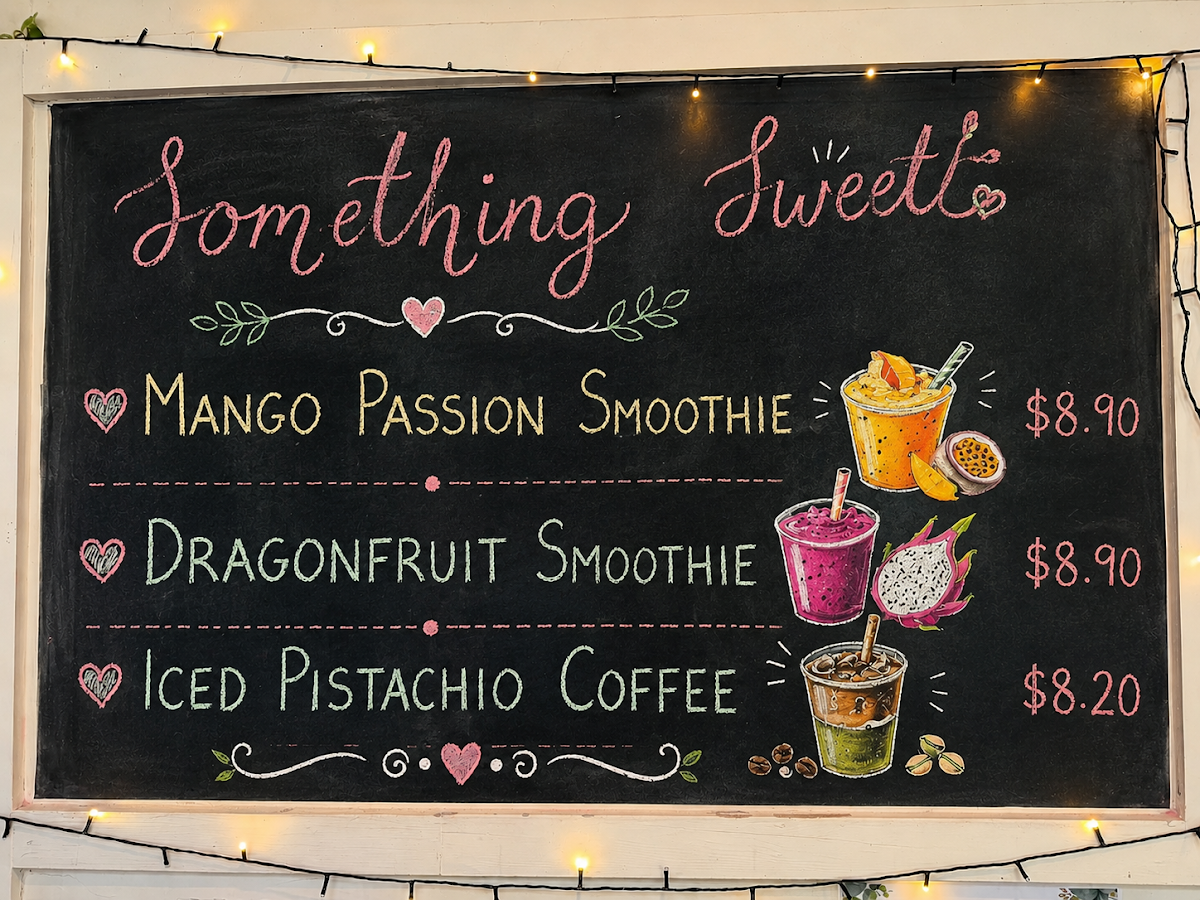 Something Sweett
Mango Passion Smoothie $8.90
Dragonfruit Smoothie $8.90
Iced Pistachio Coffee $8.20